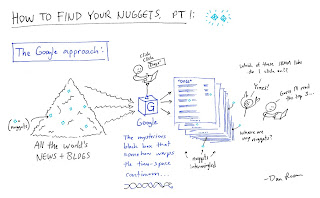 HOW TO FIND YOUR NUGGETS, PT 1:
The Google approach:
click
click
Which of these ITEMS do
I click on?
"Yikes!"
Guess I'll read
the top 3...
Where are
my nuggets?
(nuggets)
All the world's
NEWS + BLOGS
G
Google
The mysterious
black box that
somehow warps
the time-space
continuum...
nuggets
intermingled
- Dan Roam